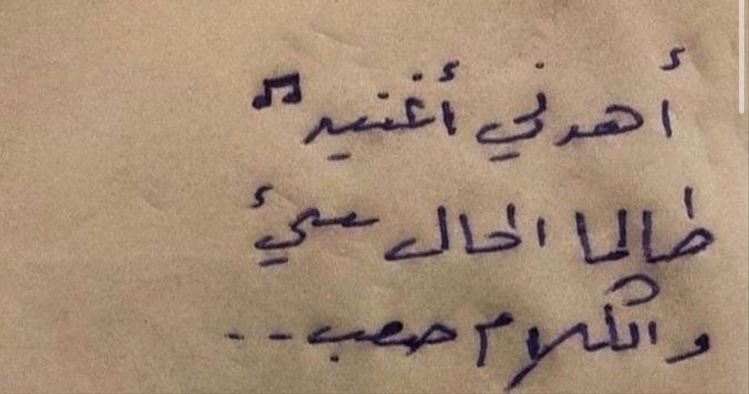 أهدني أغنية ♫
طالما الحال سيئ
والكلام صعب..